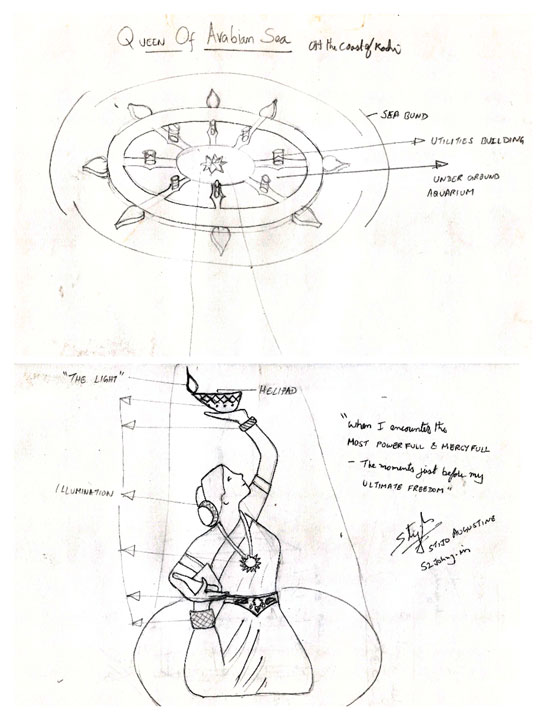 QUEEN OF ARABIAN SEA off the coast of Kochi
SEA BUND
UTILITIES BUILDING
UNDER GROUND
AQUARIUM
"THE LIGHT"
HELIPAD
ILLUMINATION
"When I encounter the
MOST POWERFULL & MERCYFULL
- The moments just before my
ULTIMATE FREEDOM"
STIJO AUGUSTINE